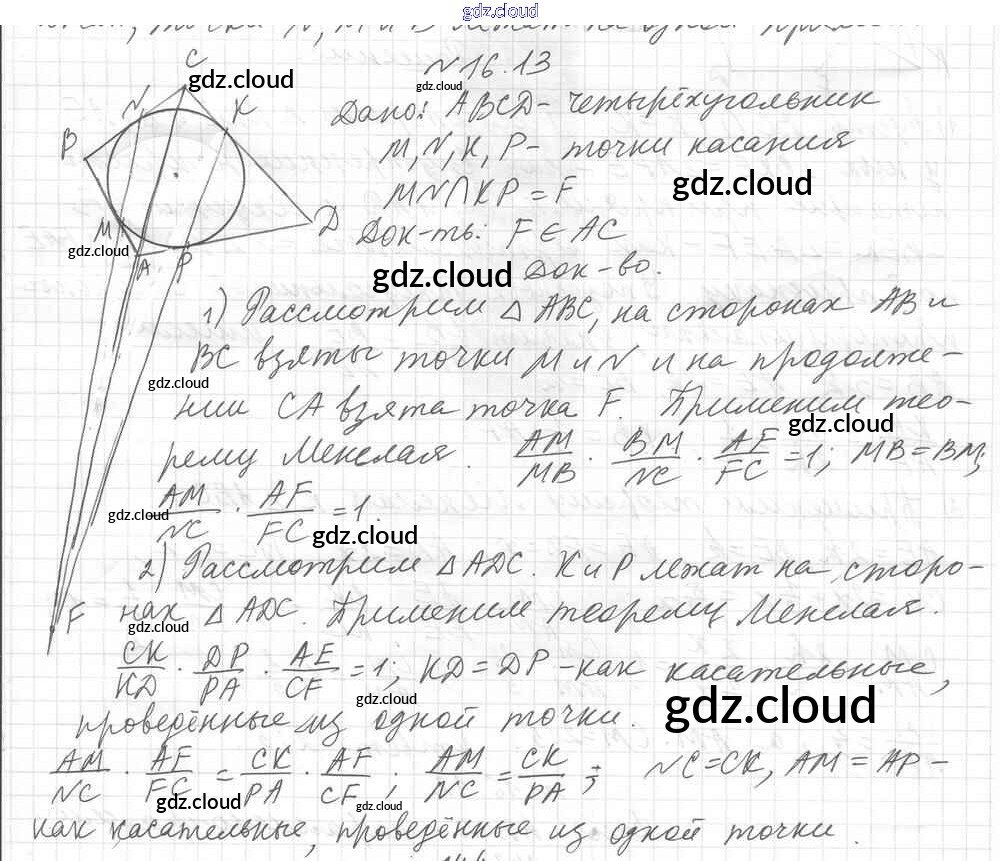 gdz.cloud
N 16.13
Дано: ABCD - четырёхугольник
M, N, K, P - точки касания
MN∩KP = F
Док-ть: F ∈ AC
Док-во.
1) Рассмотрим △ ABC, на сторонах AB и
BC взяты точки M и N и на продолже-
нии CA взята точка F. Применим тео-
рему Менелая. AM/MB · BM/NC · AF/FC = 1; MB = BM;
AM/NC · AF/FC = 1.
2) Рассмотрим △ ADC. K и P лежат на сторо-
нах △ ADC. Применим теорему Менелая.
CK/KD · DP/PA · AF/CF = 1; KD = DP - как касательные,
проведённые из одной точки.
AM/NC · AF/FC = CK/PA · AF/CF; AM/NC = CK/PA; NC = CK, AM = AP -
как касательные, проведённые из одной точки.
C
N
K
B
D
M
A
P
F
gdz.cloud
gdz.cloud
gdz.cloud
gdz.cloud
gdz.cloud
gdz.cloud
gdz.cloud
gdz.cloud
gdz.cloud
gdz.cloud
gdz.cloud
gdz.cloud
gdz.cloud
gdz.cloud